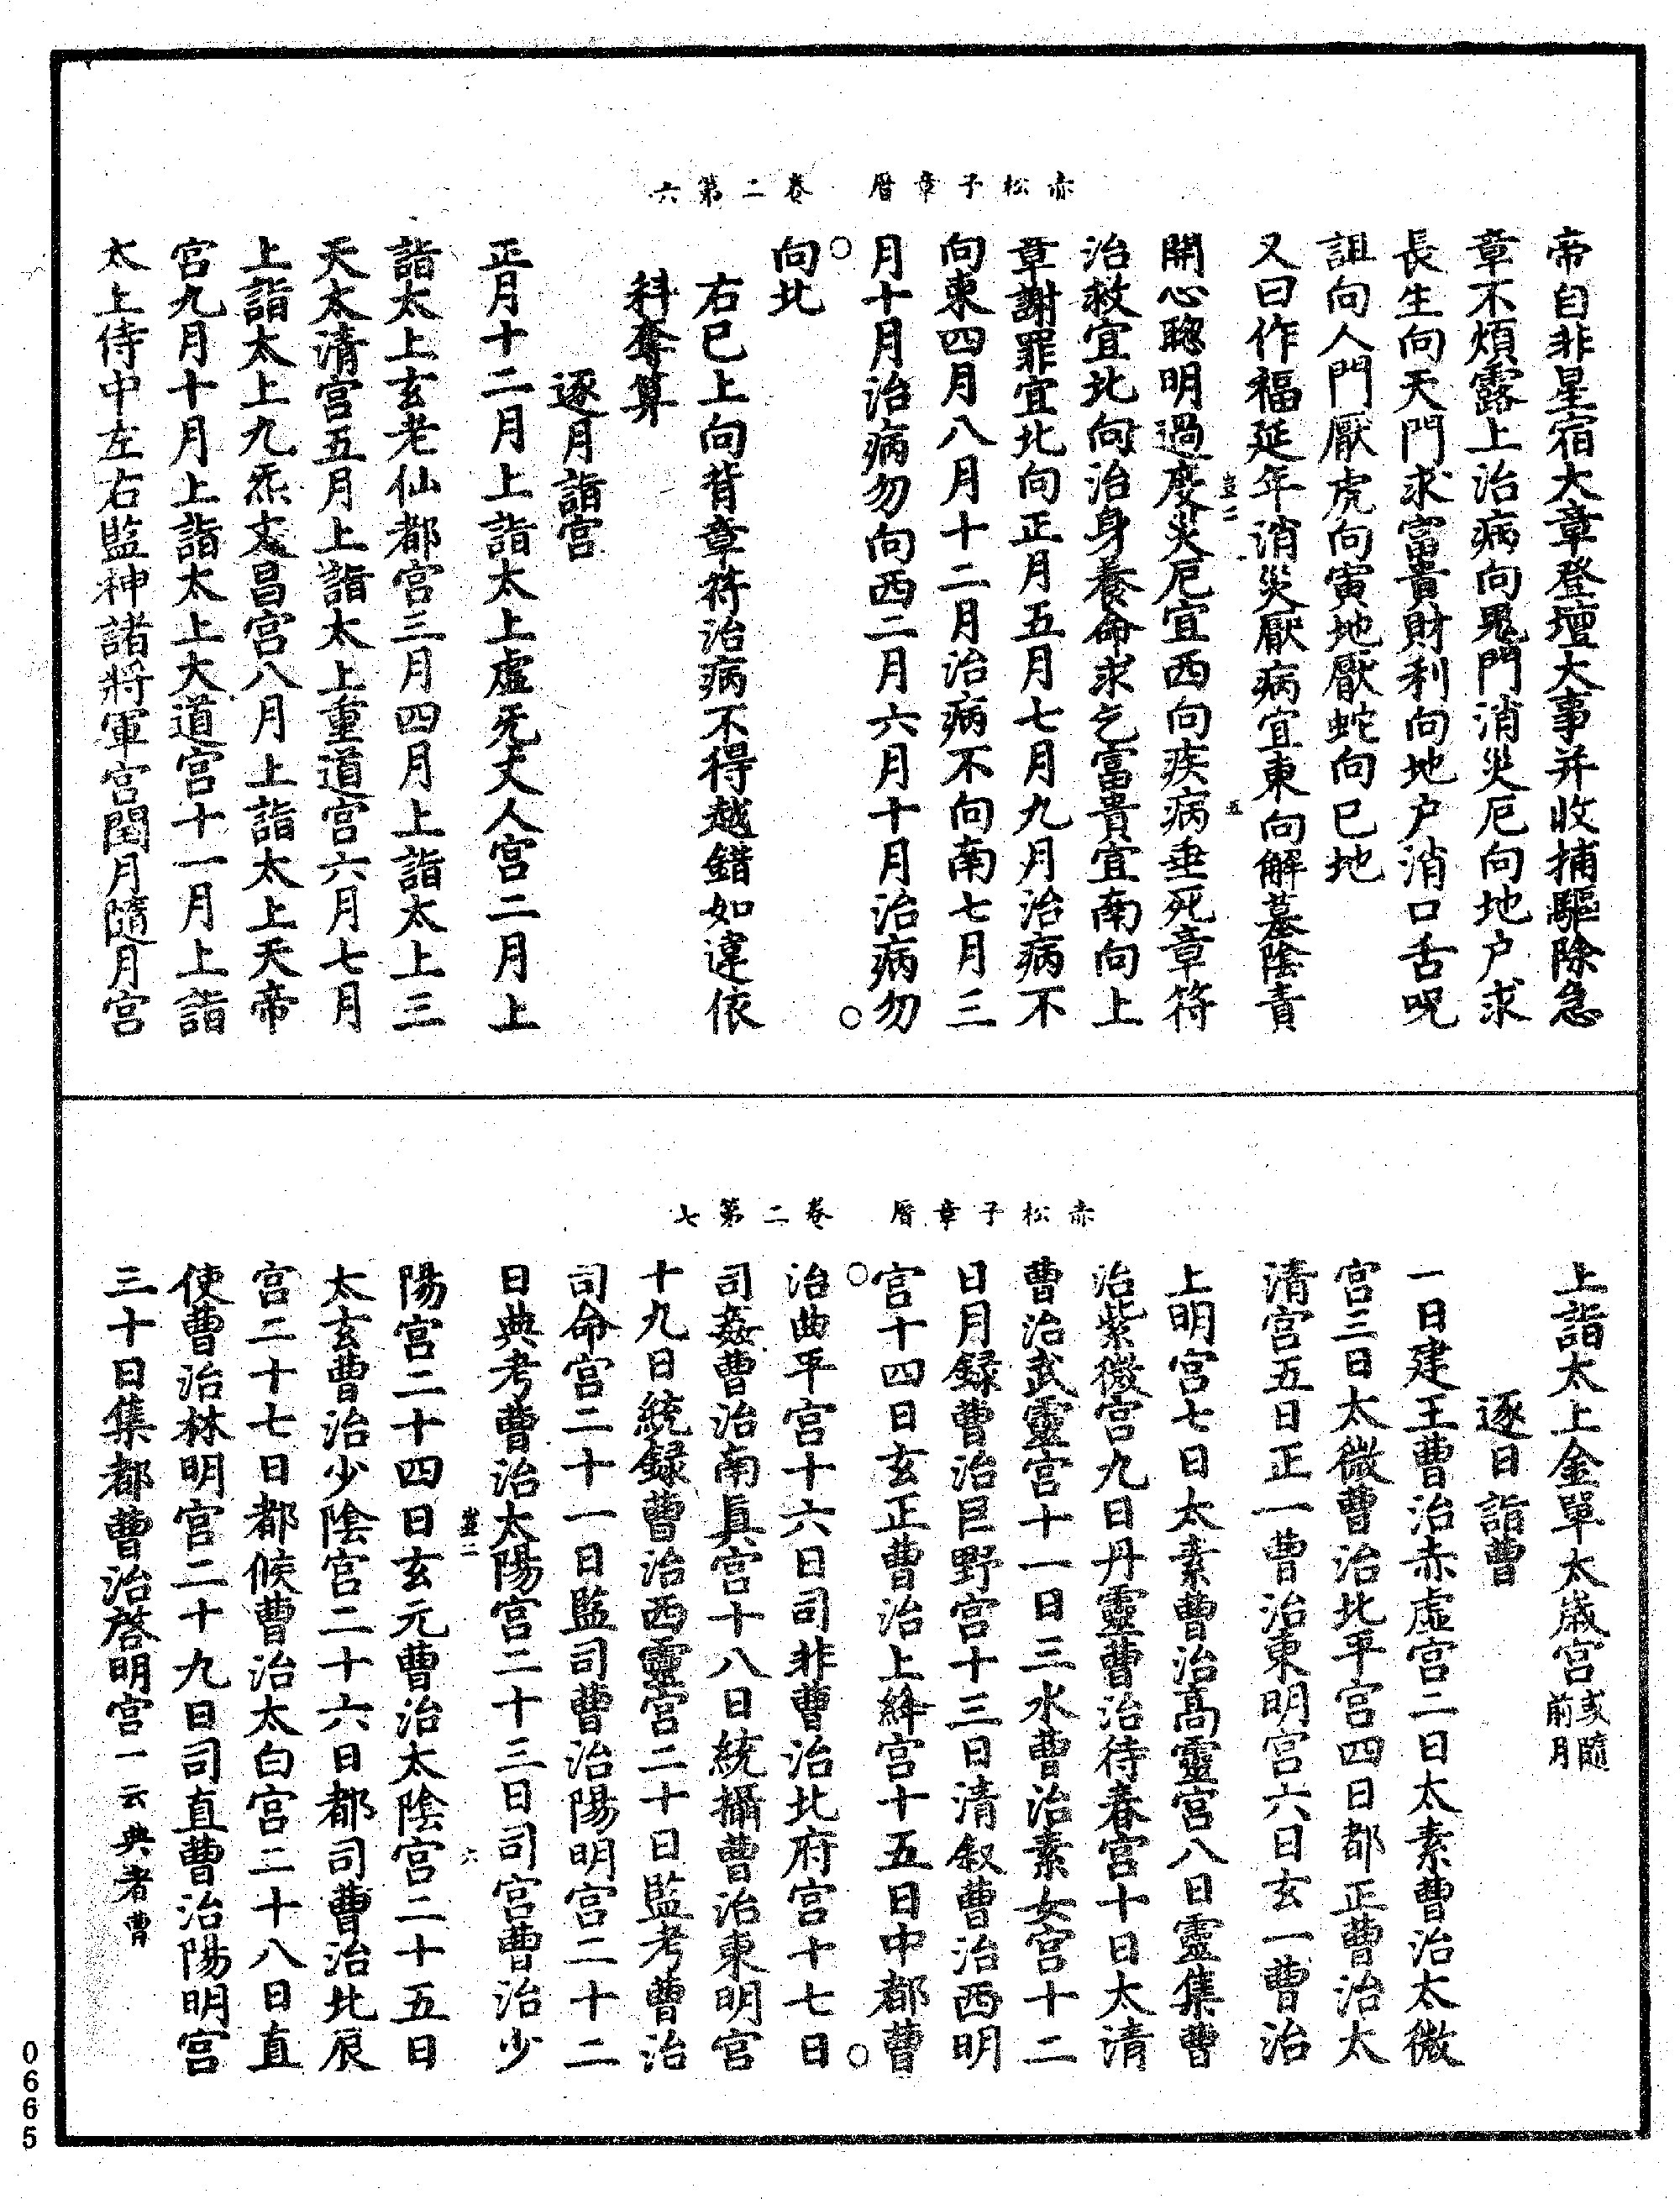 赤松子章曆　卷二第六
帝自非星宿大章登壇大事并收捕驅除急
章不煩露上治病向鬼門消災厄向地户求
長生向天門求富貴財利向地户消口舌呪
詛向人門厭虎向寅地厭蛇向巳地
又曰作福延年消災厭病宜東向解墓陰責
豈二　五
開心聰明過度災厄宜西向疾病垂死章符
治救宜北向治身養命求乞富貴宜南向上
章謝罪宜北向正月五月七月九月治病不
向東四月八月十二月治病不向南七月三
月十月治病勿向西二月六月十月治病勿
向北
右已上向背章符治病不得越錯如違依
科奪算
逐月詣宮
正月十二月上詣太上虛无丈人宮二月上
詣太上玄老仙都宮三月四月上詣太上三
天太清宮五月上詣太上重道宮六月七月
上詣太上九炁丈昌宮八月上詣太上天帝
宮九月十月上詣太上大道宮十一月上詣
太上侍中左右監神諸將軍宮閏月隨月宮
赤松子章曆　卷二第七
上詣太上金單太歲宮或隨前月
逐日詣曹
一日建王曹治赤虛宮二日太素曹治太微
宮三日太微曹治北平宮四日都正曹治太
清宮五日正一曹治東明宮六日玄一曹治
上明宮七日太素曹治高靈宮八日靈集曹
治紫微宮九日丹靈曹治待春宮十日太清
曹治武靈宮十一日三水曹治素女宮十二
日月録曹治巨野宮十三日清叙曹治西明
宮十四日玄正曹治上絳宮十五日中都曹
治曲平宮十六日司非曹治北府宮十七日
司姦曹治南真宮十八日統攝曹治東明宮
十九日統録曹治西靈宮二十日監考曹治
司命宮二十一日監司曹治陽明宮二十二
日典考曹治太陽宮二十三日司宮曹治少
豈二　六
陽宮二十四日玄元曹治太陰宮二十五日
太玄曹治少陰宮二十六日都司曹治北辰
宮二十七日都候曹治太白宮二十八日直
使曹治林明宮二十九日司直曹治陽明宮
三十日集都曹治啓明宮一云典者曹
0665